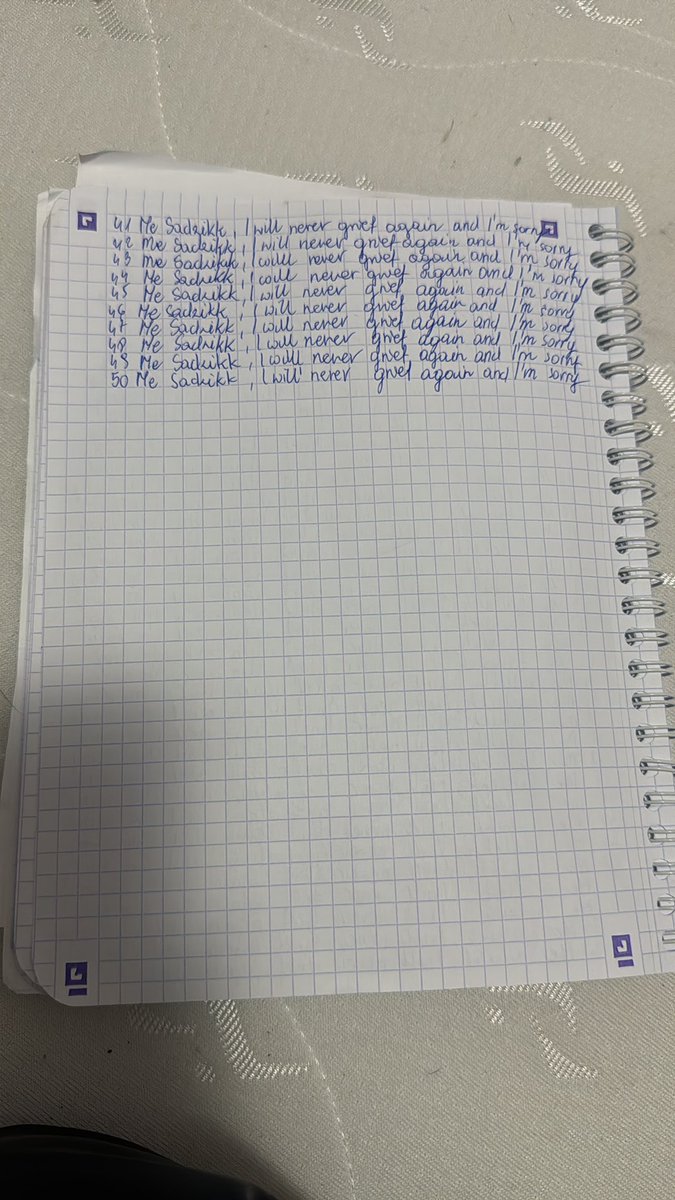 41 Me Sadzikk, I will never grief again and I'm sorry
42 Me Sadzikk, I will never grief again and I'm sorry
43 Me Sadzikk, I will never grief again and I'm sorry
44 Me Sadzikk, I will never grief again and I'm sorry
45 Me Sadzikk, I will never grief again and I'm sorry
46 Me Sadzikk, I will never grief again and I'm sorry
47 Me Sadzikk, I will never grief again and I'm sorry
48 Me Sadzikk, I will never grief again and I'm sorry
49 Me Sadzikk, I will never grief again and I'm sorry
50 Me Sadzikk, I will never grief again and I'm sorry